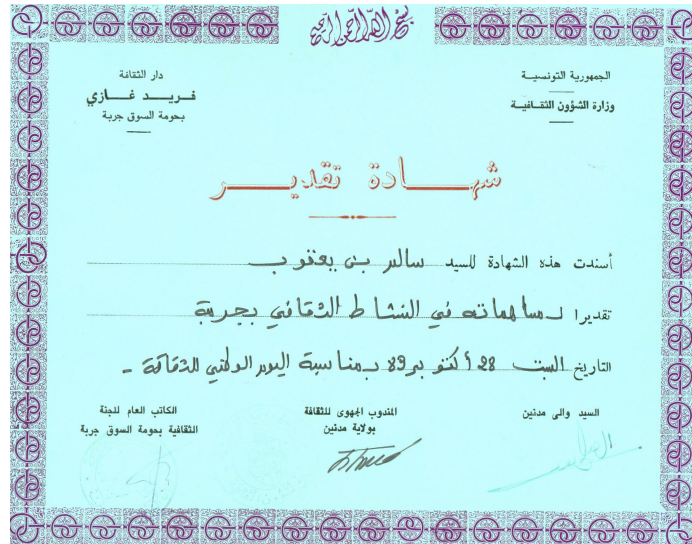 بسم الله الرحمن الرحيم
الجمهورية التونسيــة
وزارة الشؤون الثقــافيـة
دار الثقافة
فـريــــد غــــازي
بحومة السوق جربة
شهـــــادة تقديـــــر
أسندت هذه الشهادة للسيد سالم بن يعقوب
تقديرا لمساهماته في النشاط الثقافي بجربة
التاريخ السبت 28 أكتوبر 89 بمناسبة اليوم الوطني للثقافة -
السيد والى مدنين
المندوب الجهوى للثقافة
بولاية مدنين
الكاتب العام للجنة
الثقافية بحومة السوق جربة